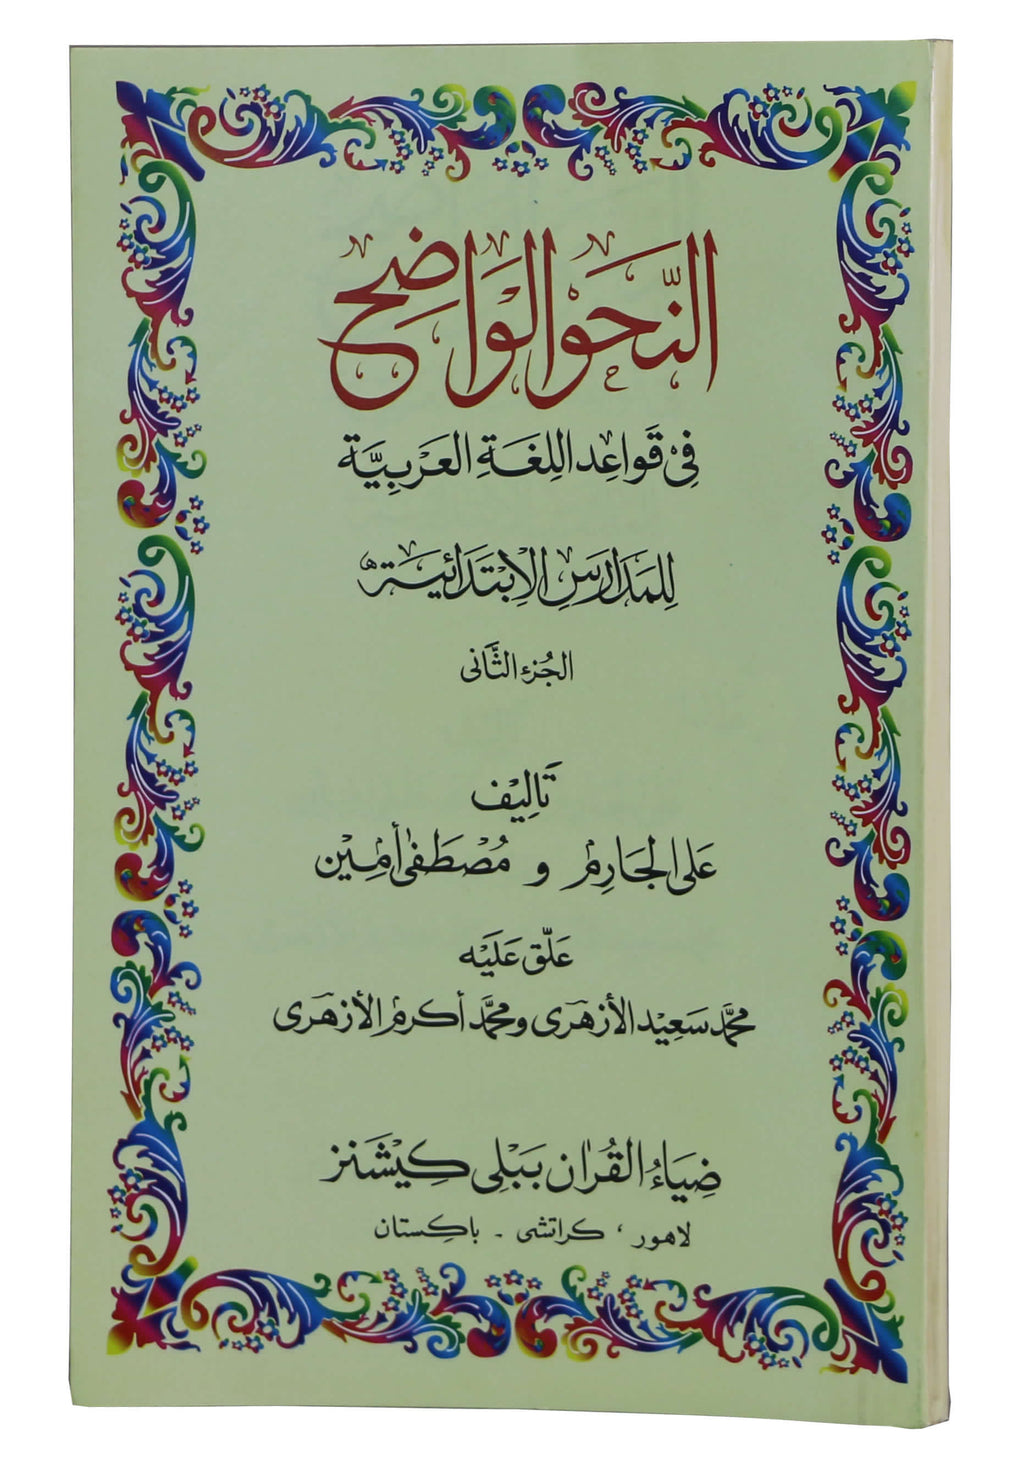 النَّحوُ الوَاضِح
فِي قَوَاعِد اللغَةِ العَرَبِيَّة
لِلمَدَارِسِ الإبْتَدَائِيَة
الجُزءِ الثَّانى
تَالِيْف
عَلى الجَارِم و مُصْطَفٰى أمِيْن
عَلّق عَلَيْه
محمَّد سَعِيْد الأزهَرى ومحمَّد أكرم الأزهَرى
ضِيَاءُ القُرآن پبلى كيشَنز
لاهور، كراتشى - باكستان